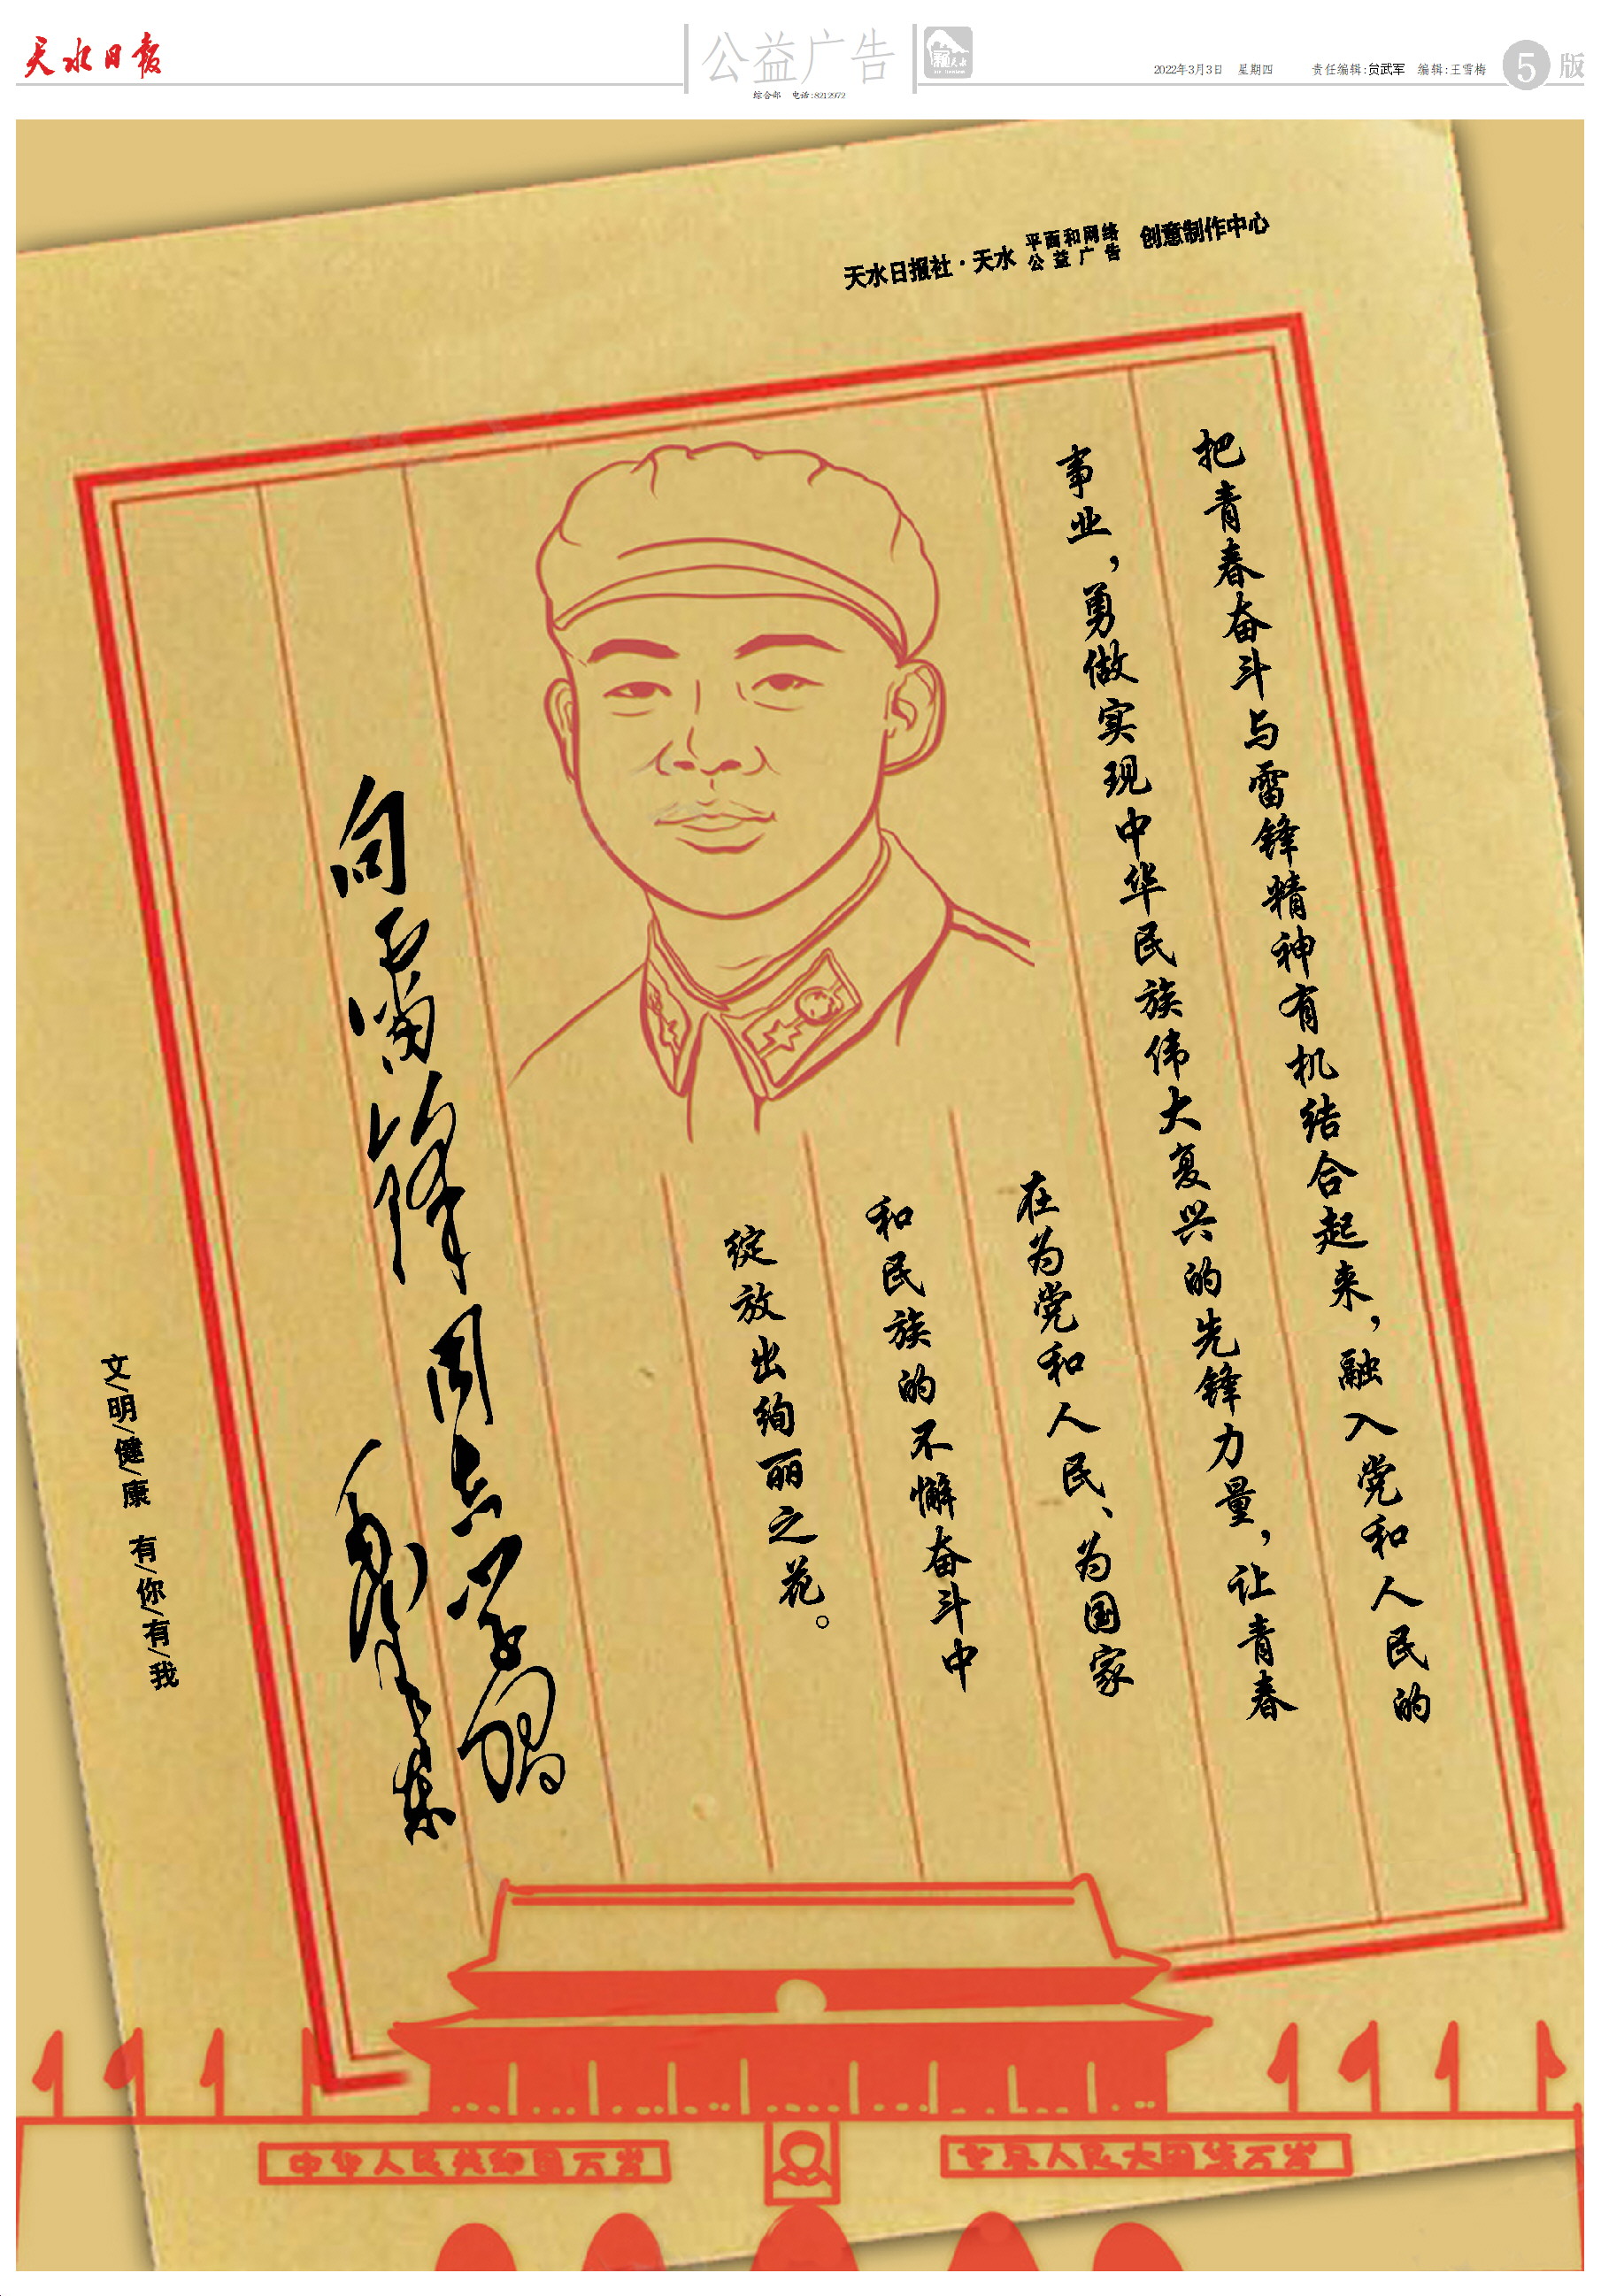 天水日报
公益广告
综合部 电话:8212972
2022年3月3日 星期四 责任编辑:贠武军 编辑:王雪梅
5版
天水日报社·天水 平面和网络公益广告 创意制作中心
把青春奋斗与雷锋精神有机结合起来，融入党和人民的
事业，勇做实现中华民族伟大复兴的先锋力量，让青春
在为党和人民、为国家
和民族的不懈奋斗中
绽放出绚丽之花。
向雷锋同志学习
毛泽东
文/明/健/康 有/你/有/我
中华人民共和国万岁
世界人民大团结万岁